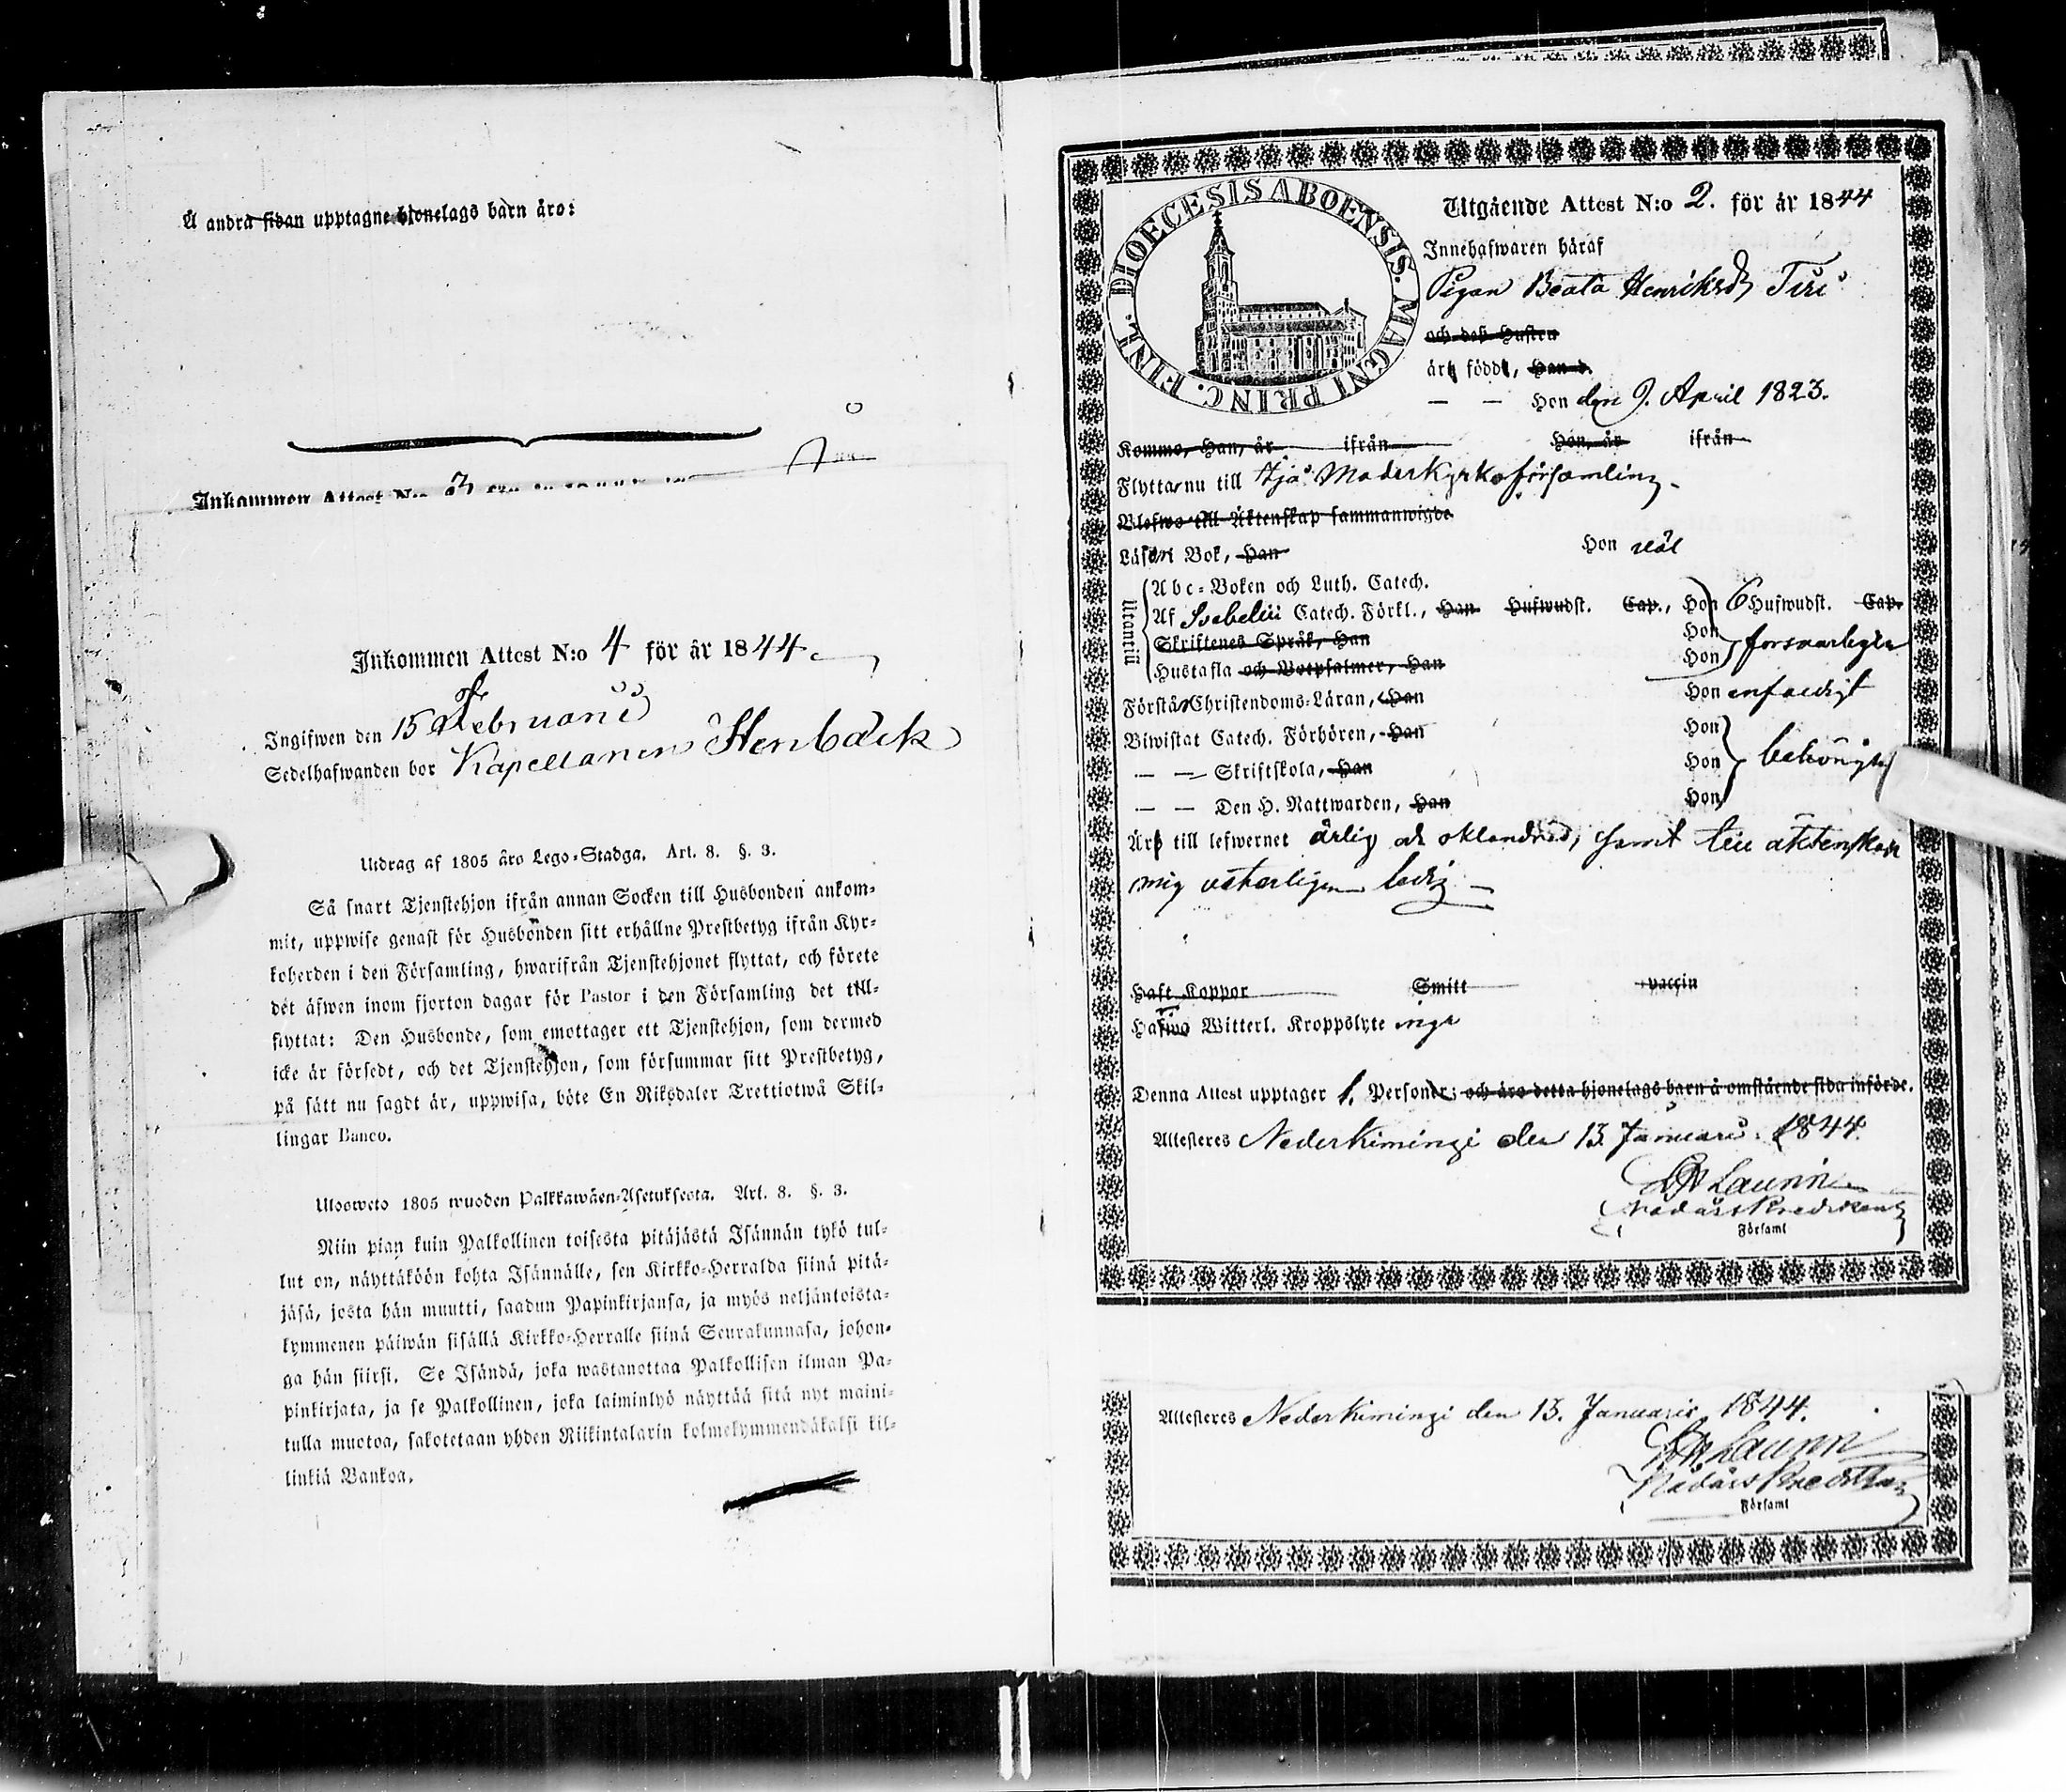 Å andra sidan upptagne hjonelags barn äro:
Inkommen Attest N:o 3
Inkommen Attest N:o 4 för år 1844.
Ingifwen den 15 Februarii
Sedelhafwanden bor Kapellanen Stenbäck
Utdrag af 1805 års Lego-Stadga. Art. 8. §. 3.
Så snart Tjenstehjon ifrån annan Socken till Husbonden ankom-
mit, uppwise genast för Husbonden sitt erhållne Prestbetyg ifrån Kyr-
koherden i den Församling, hwarifrån Tjenstehjonet flyttat, och förete
det äfwen inom fjorton dagar för Pastor i den Församling det till-
flyttat: Den Husbonde, som emottager ett Tjenstehjon, som dermed
icke är försedt, och det Tjenstehjon, som försummar sitt Prestbetyg,
på sätt nu sagdt är, uppwisa, böte En Riksdaler Trettiotwå Skil-
lingar Banco.
Uloosweto 1805 wuoden Palkkawäen-Asetuksesta. Art. 8. §. 3.
Niin pian kuin Palkollinen toisesta pitäjästä Isännän tykö tul-
lut on, näyttäköön kohta Isännälle, sen Kirkko-Herralda siinä pitä-
jäsä, josta hän muutti, saadun Papinkirjansa, ja myös neljäntoista-
kymmenen päiwän sisällä Kirkko-Herralle siinä Seurakunnasa, johon-
ga hän siirsi. Se Isändä, joka wastanottaa Palkollisen ilman Pa-
pinkirjata, ja se Palkollinen, joka laiminlyö näyttää sitä nyt maini-
tulla muotoa, sakotetaan yhden Riikintalarin kolmekymmendäkaksi kil-
linkiä Bankoa.
DIOECESIS ABOENSIS. MAGNI PRINC. FINL.
Utgående Attest N:o 2. för år 1844
Innehafwaren häraf
Pigan Beata Henriksdr Tiri
och deß Hustru
äro födde, Han d.
— — Hon den 9. April 1823.
Kommo, Han, år ifrån Hon, år ifrån
Flytta nu till Ijo Moderkyrkoförsamling.
Blefwo till Äktenskap sammanwigde
Läsa i Bok, Han Hon väl
Utantill
Abc-Boken och Luth. Catech.
Af Svebelii Catech. Förkl., Han Hufwudst. Cap., Hon 6 Hufwudst. Cap.
Skriftenes Språk, Han Hon
Hustafla och Botpsalmer, Han Hon försvarligen
Förstå Christendoms-Läran, Han Hon enfaldigt
Biwistat Catech. Förhören, Han Hon
— — Skriftskola, Han Hon behörigt
— — Den H. Nattwarden, Han Hon
Äro till lefwernet ärlig och oklandrad, samt till äktenskap
mig veterligen ledig
Haft Koppor Smitt vaccin
Hafwa Witterl. Kroppslyte inga
Denna Attest upptager 1. Personer: och äro detta hjonelags barn å omstående sida införde.
Attesteres Nederkimingi den 13. Januarii 1844.
Launin
Nådårs Predikant
Församl
Attesteres Nederkimingi den 13. Januarii 1844.
Launin
Nådårs Predikant
Församl